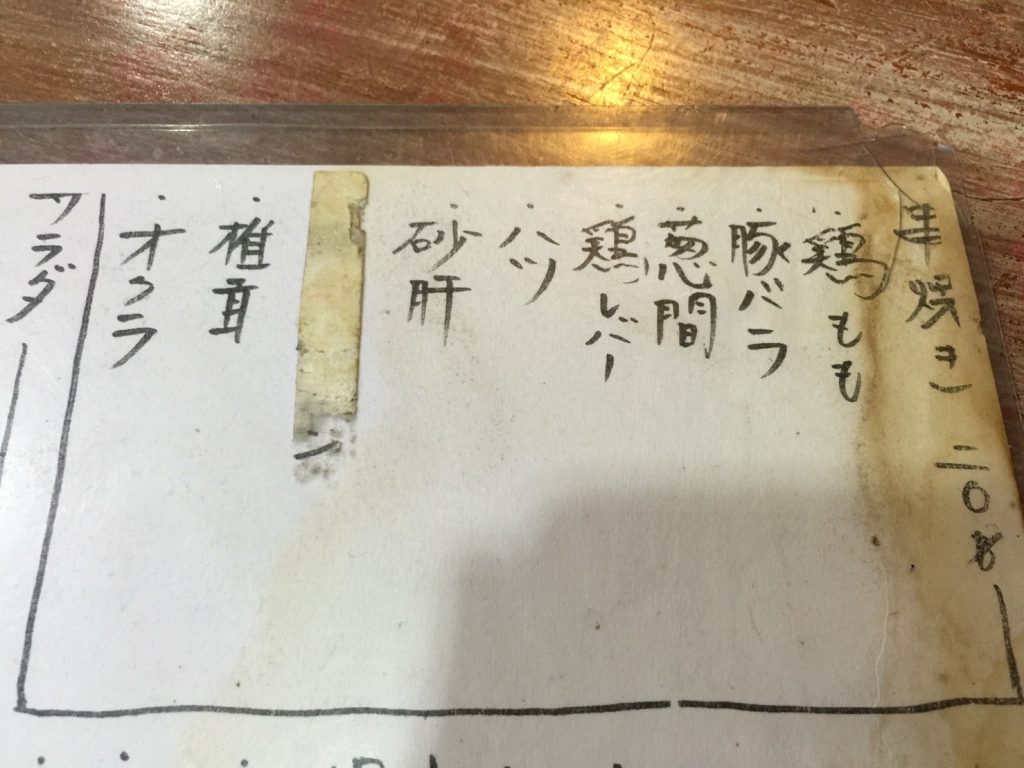 串焼き 二〇
・鶏もも
・豚バラ
・葱間
・鶏レバー
・ハツ
・砂肝
ン
・椎茸
・オクラ
サラダ